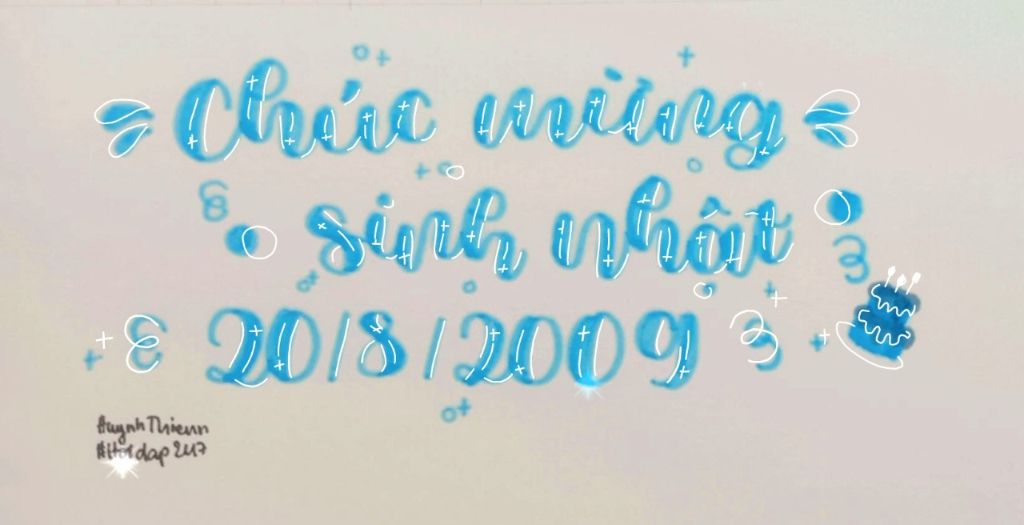 Chúc mừng
sinh nhật
20/8/2009
#HuynhThienn
#Hoidap247